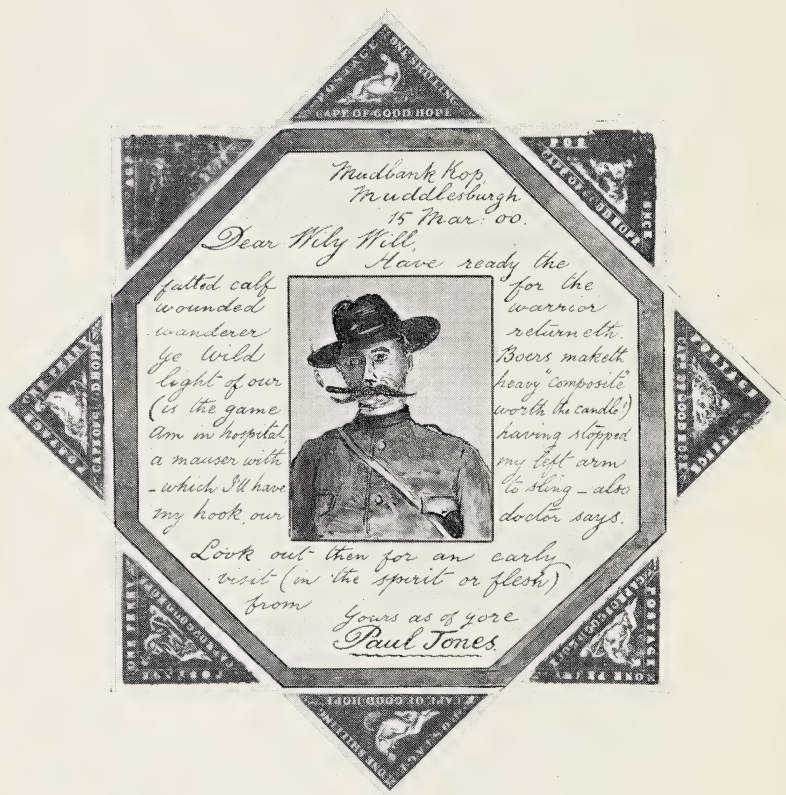 POSTAGE ONE SHILLING
CAPE OF GOOD HOPE
Mudbank Kop
Muddlesburgh
15 Mar: 00.
Dear Wily Will,
Have ready the
fatted calf for the
wounded warrior
wanderer returneth.
Ye Wild Boers maketh
light of our heavy "composite"
(is the game worth the candle?)
Am in hospital, having stopped
a mauser with my left arm
- which I'll have to sling - also
my hook, our doctor says.
Look out then for an early
visit (in the spirit or flesh)
from
Yours as of yore
Paul Jones.
ONE PENNY
POSTAGE
CAPE OF GOOD HOPE
POSTAGE
CAPE OF GOOD HOPE
ONE PENNY
POSTAGE
CAPE OF GOOD HOPE
POSTAGE
ONE PENNY
CAPE OF GOOD HOPE
CAPE OF GOOD HOPE
ONE SHILLING
POSTAGE